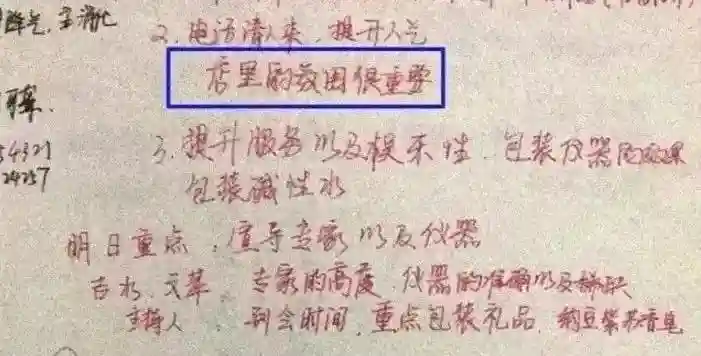 2. 电话请人来，提升人气
店里的氛围很重要
3. 提升服务以及娱乐性，包装仪器的效果
包装碱性水
明日重点，宣导专家以及仪器
吉水、文革，专家的高度，仪器的准确以及稀缺
主持人，到会时间，重点包装礼品，纳豆
54321
24257